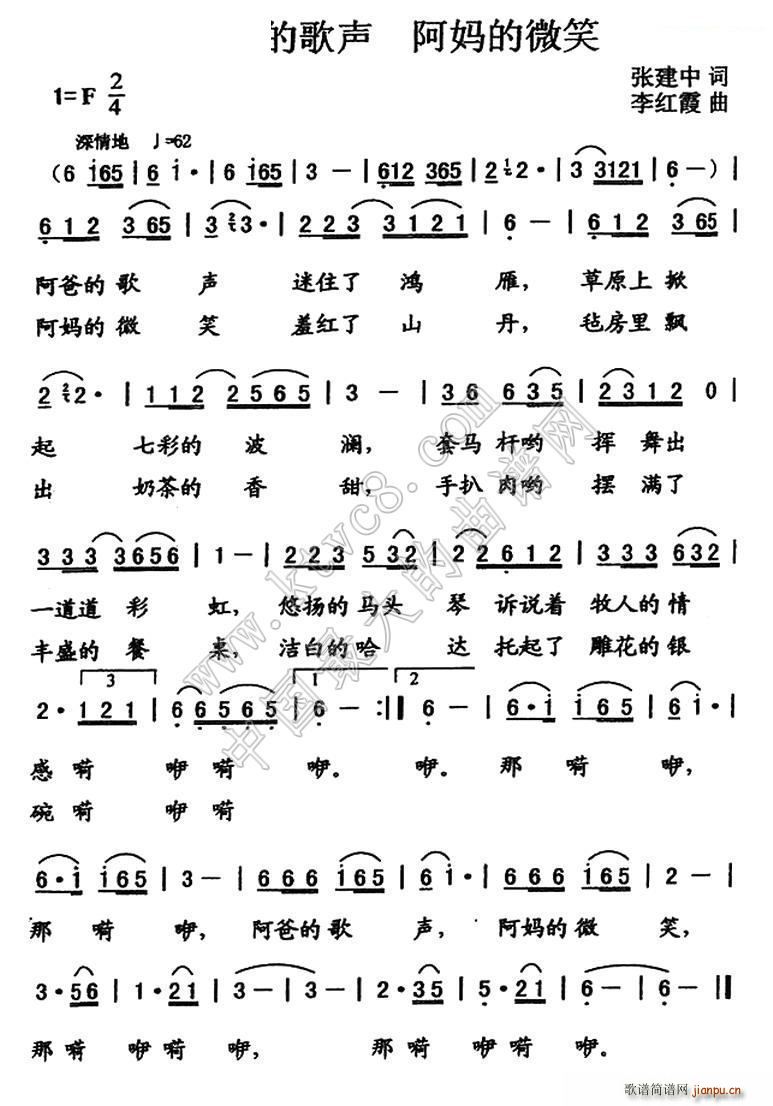 的歌声 阿妈的微笑
张建中 词
1=F 2/4
李红霞 曲
深情地 ♩=62
(6 i65 | 6 i· | 6 i65 | 3 - | 612 365 | 2 2· | 3 3121 | 6 -) |
6 1 2 3 65 | 3 3· | 2 2 3 3 1 2 1 | 6 - | 6 1 2 3 65 |
阿爸的 歌 声 迷住了 鸿 雁, 草原上 掀
阿妈的 微 笑 羞红了 山 丹, 毡房里 飘
2 2· | 1 1 2 2 5 6 5 | 3 - | 3 6 6 3 5 | 2 3 1 2 0 |
起 七彩的 波 澜, 套马 杆哟 挥 舞出
出 奶茶的 香 甜, 手扒 肉哟 摆 满了
3 3 3 3 6 5 6 | 1 - | 2 2 3 5 3 2 | 2 2 6 1 2 | 3 3 3 6 3 2 |
一道道 彩 虹, 悠扬的 马头 琴 诉说着 牧人的 情
丰盛的 餐 桌, 洁白的 哈 达 托起了 雕花的 银
3 1 2
2· 1 2 1 | 6 6 5 6 5 | 6 - :|| 6 - | 6· i | i 6 5 | 6 · i · |
感 嗬 咿 嗬 咿。 咿。 那 嗬 咿,
碗 嗬 咿 嗬
6· i | i 6 5 | 3 - | 6 6 6 | i 6 5 | 6 i· | 6 6 6 | i 6 5 | 2 - |
那 嗬 咿, 阿爸的 歌 声, 阿妈的 微 笑,
3· 5 6 | 1· 2 1 | 3 - | 3 - | 2· 3 5 | 5· 2 1 | 6 - | 6 - ||
那 嗬 咿 嗬 咿, 那 嗬 咿 嗬 咿。
www.ktvc8.com
中国最大的曲谱网
歌谱简谱网 jianpu.cn